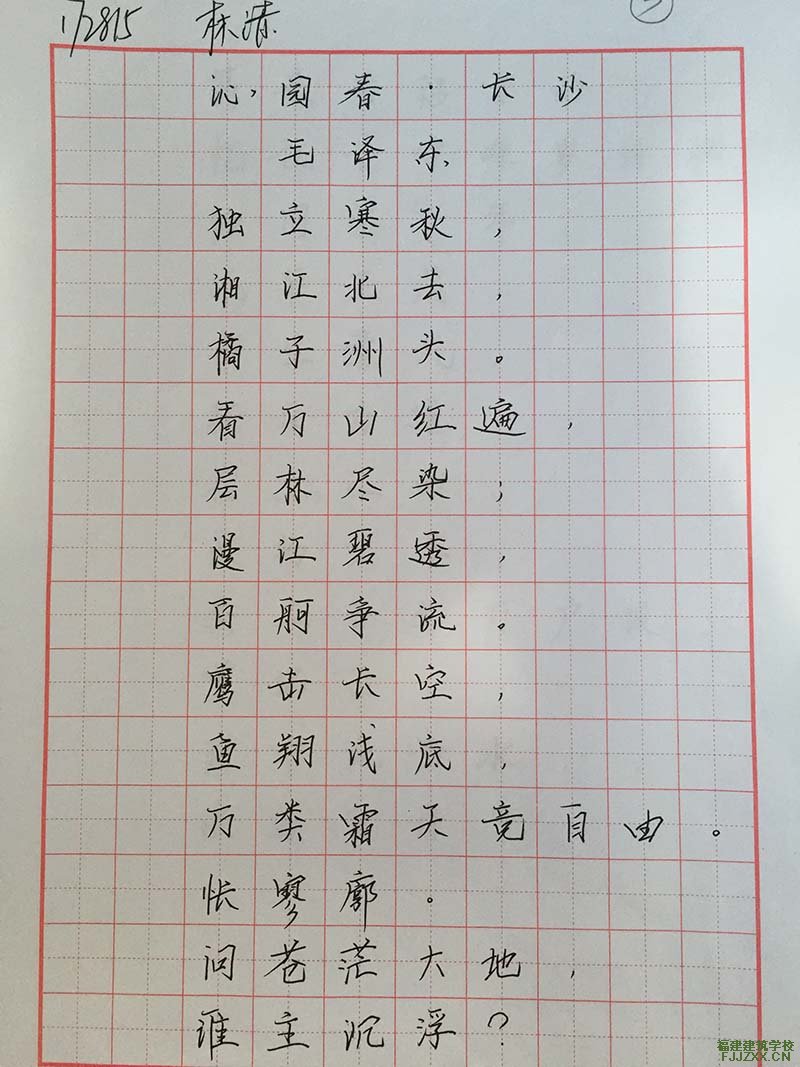 172815 林清
沁,园春·长沙
毛泽东
独立寒秋,
湘江北去,
橘子洲头。
看万山红遍,
层林尽染;
漫江碧透,
百舸争流。
鹰击长空,
鱼翔浅底,
万类霜天竞自由。
怅寥廓。
问苍茫大地,
谁主沉浮?
福建建筑学校
FJJZXX.CN